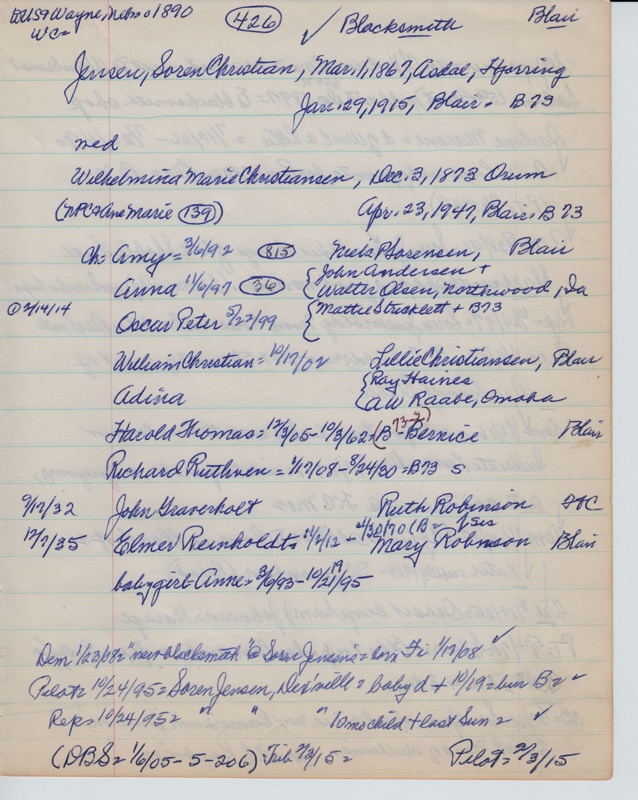 DUSA Wayne, Nebr 1890 426 ✓ Blacksmith Blair
WC=
Jensen, Soren Christian, Mar. 1, 1867, Asdal, Hjorring
Jan. 29, 1915, Blair - B73
med
Wilhelmina Marie Christiansen, Dec. 3, 1873 Orum
(NPC + Ane Marie 139) Apr. 23, 1947, Blair - B73
Ch = Amy = 3/6/92 815 Niels P Sorensen, Blair
Anna 11/6/97 36 {John Andersen +
Walter Olsen, Northwood, Ia
① 2/14/14 Oscar Peter 5/22/99 {Mattie Stricklett + B73
William Christian = 10/17/02 Lillie Christiansen, Blair
Adina {Ray Haines
AW Raabe, Omaha
Harold Thomas = 12/3/05 - 10/3/62 = (B 73-2) - Bernice Blair
Richard Ruthven = 1/17/08 - 8/24/30 = B73 S
9/17/32 John Graverholt Ruth Robinson FTC
12/7/35 Elmer Reinholdt = - 4/30/70 (B = Mary Robinson } sis Blair
baby girl - Anne = 3/6/93 - 10/19/95
Dem 1/23/08 = "new blacksmith" @ Soren Jensen's = born Fri 1/17/08 ✓
Pilot = 10/24/95 = Soren Jensen, = baby d + 10/19 = bur B = ✓
Reps 10/24/95 = " " " 10 mo child + last Sun = ✓
(DBS = 1/6/05 - 5 - 206) Trib 2/3/15 = Pilot = 2/3/15